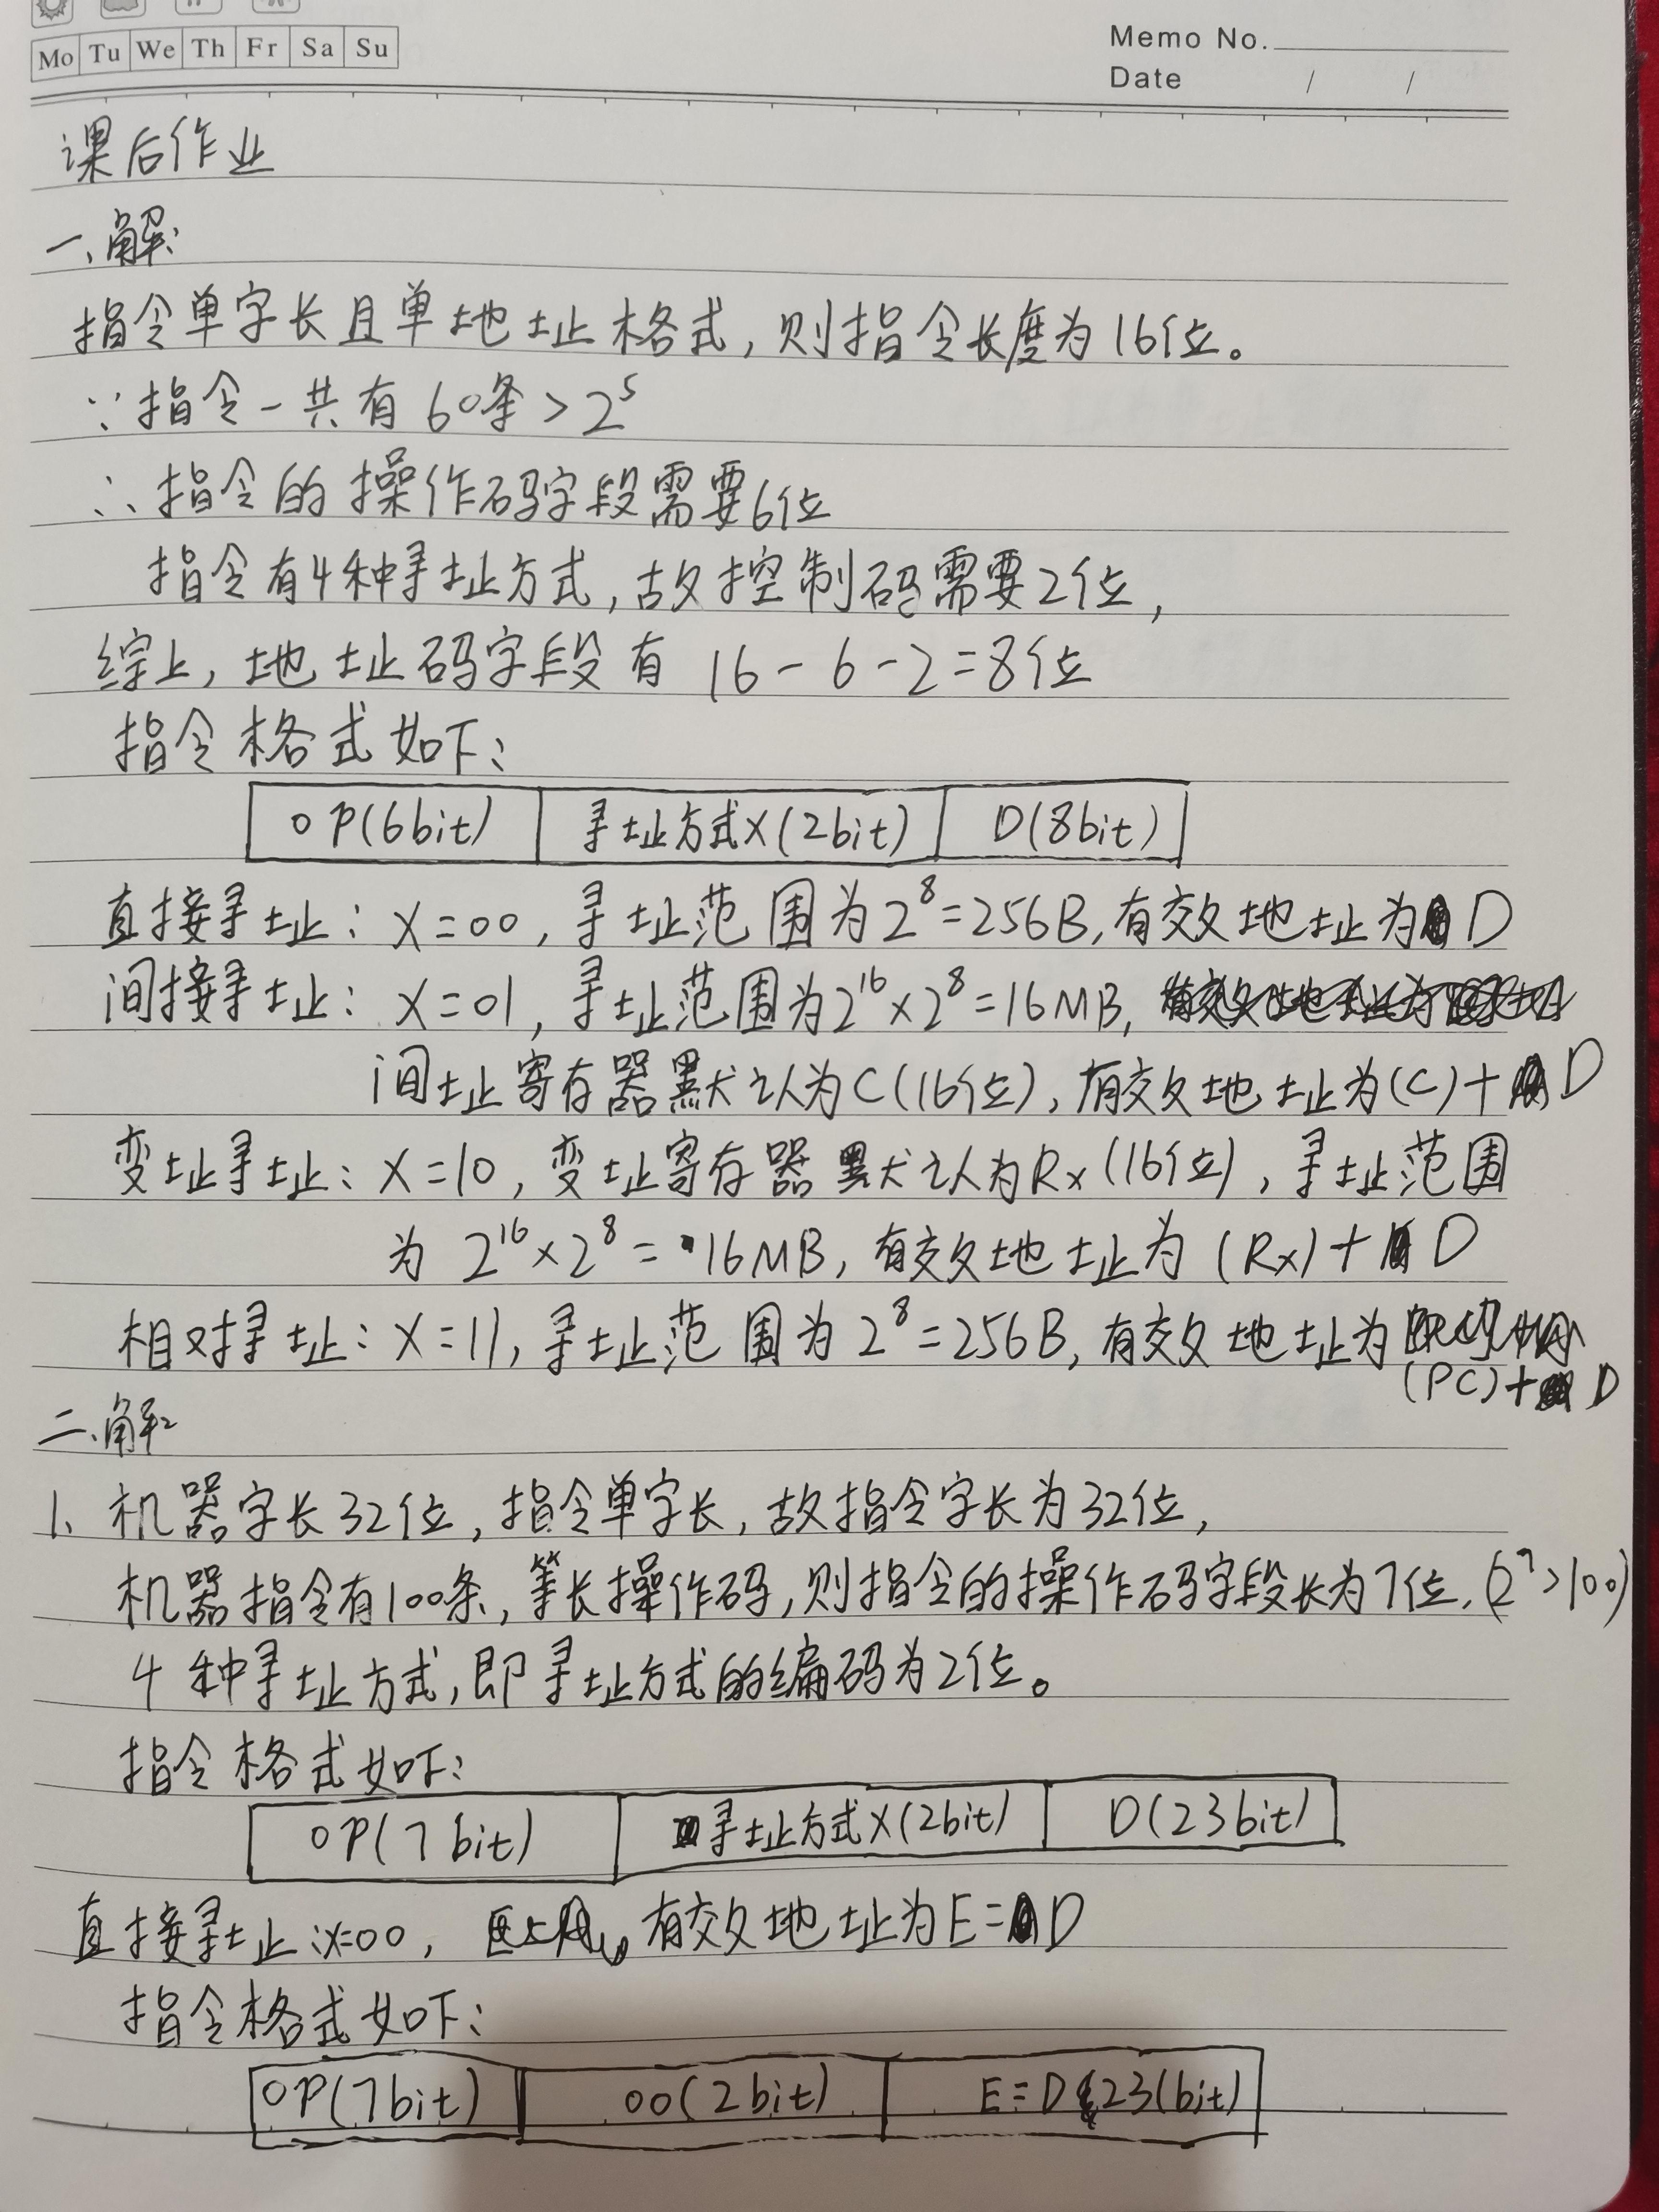 Mo Tu We Th Fr Sa Su
Memo No.
Date / /
课后作业
一、解:
指令单字长且单地址格式,则指令长度为16位。
∵指令一共有60条>2⁵
∴指令的操作码字段需要6位
指令有4种寻址方式,故控制码需要2位,
综上,地址码字段有 16-6-2=8位
指令格式如下:
OP(6bit) 寻址方式X(2bit) D(8bit)
直接寻址: X=00, 寻址范围为2⁸=256B,有效地址为D
间接寻址: X=01, 寻址范围为2¹⁶×2⁸=16MB,
间址寄存器默认为C(16位), 有效地址为(C)+D
变址寻址: X=10, 变址寄存器默认为Rx(16位), 寻址范围
为 2¹⁶×2⁸=16MB, 有效地址为 (Rx)+D
相对寻址: X=11, 寻址范围为 2⁸=256B, 有效地址为
(PC)+D
二、解
1、机器字长32位,指令单字长,故指令字长为32位,
机器指令有100条,等长操作码,则指令的操作码字段长为7位.(2⁷>100)
4种寻址方式,即寻址方式的编码为2位。
指令格式如下:
OP(7bit) 寻址方式X(2bit) D(23bit)
直接寻址:X=00, 有效地址为E=D
指令格式如下:
OP(7bit) 00(2bit) E=D 23(bit)